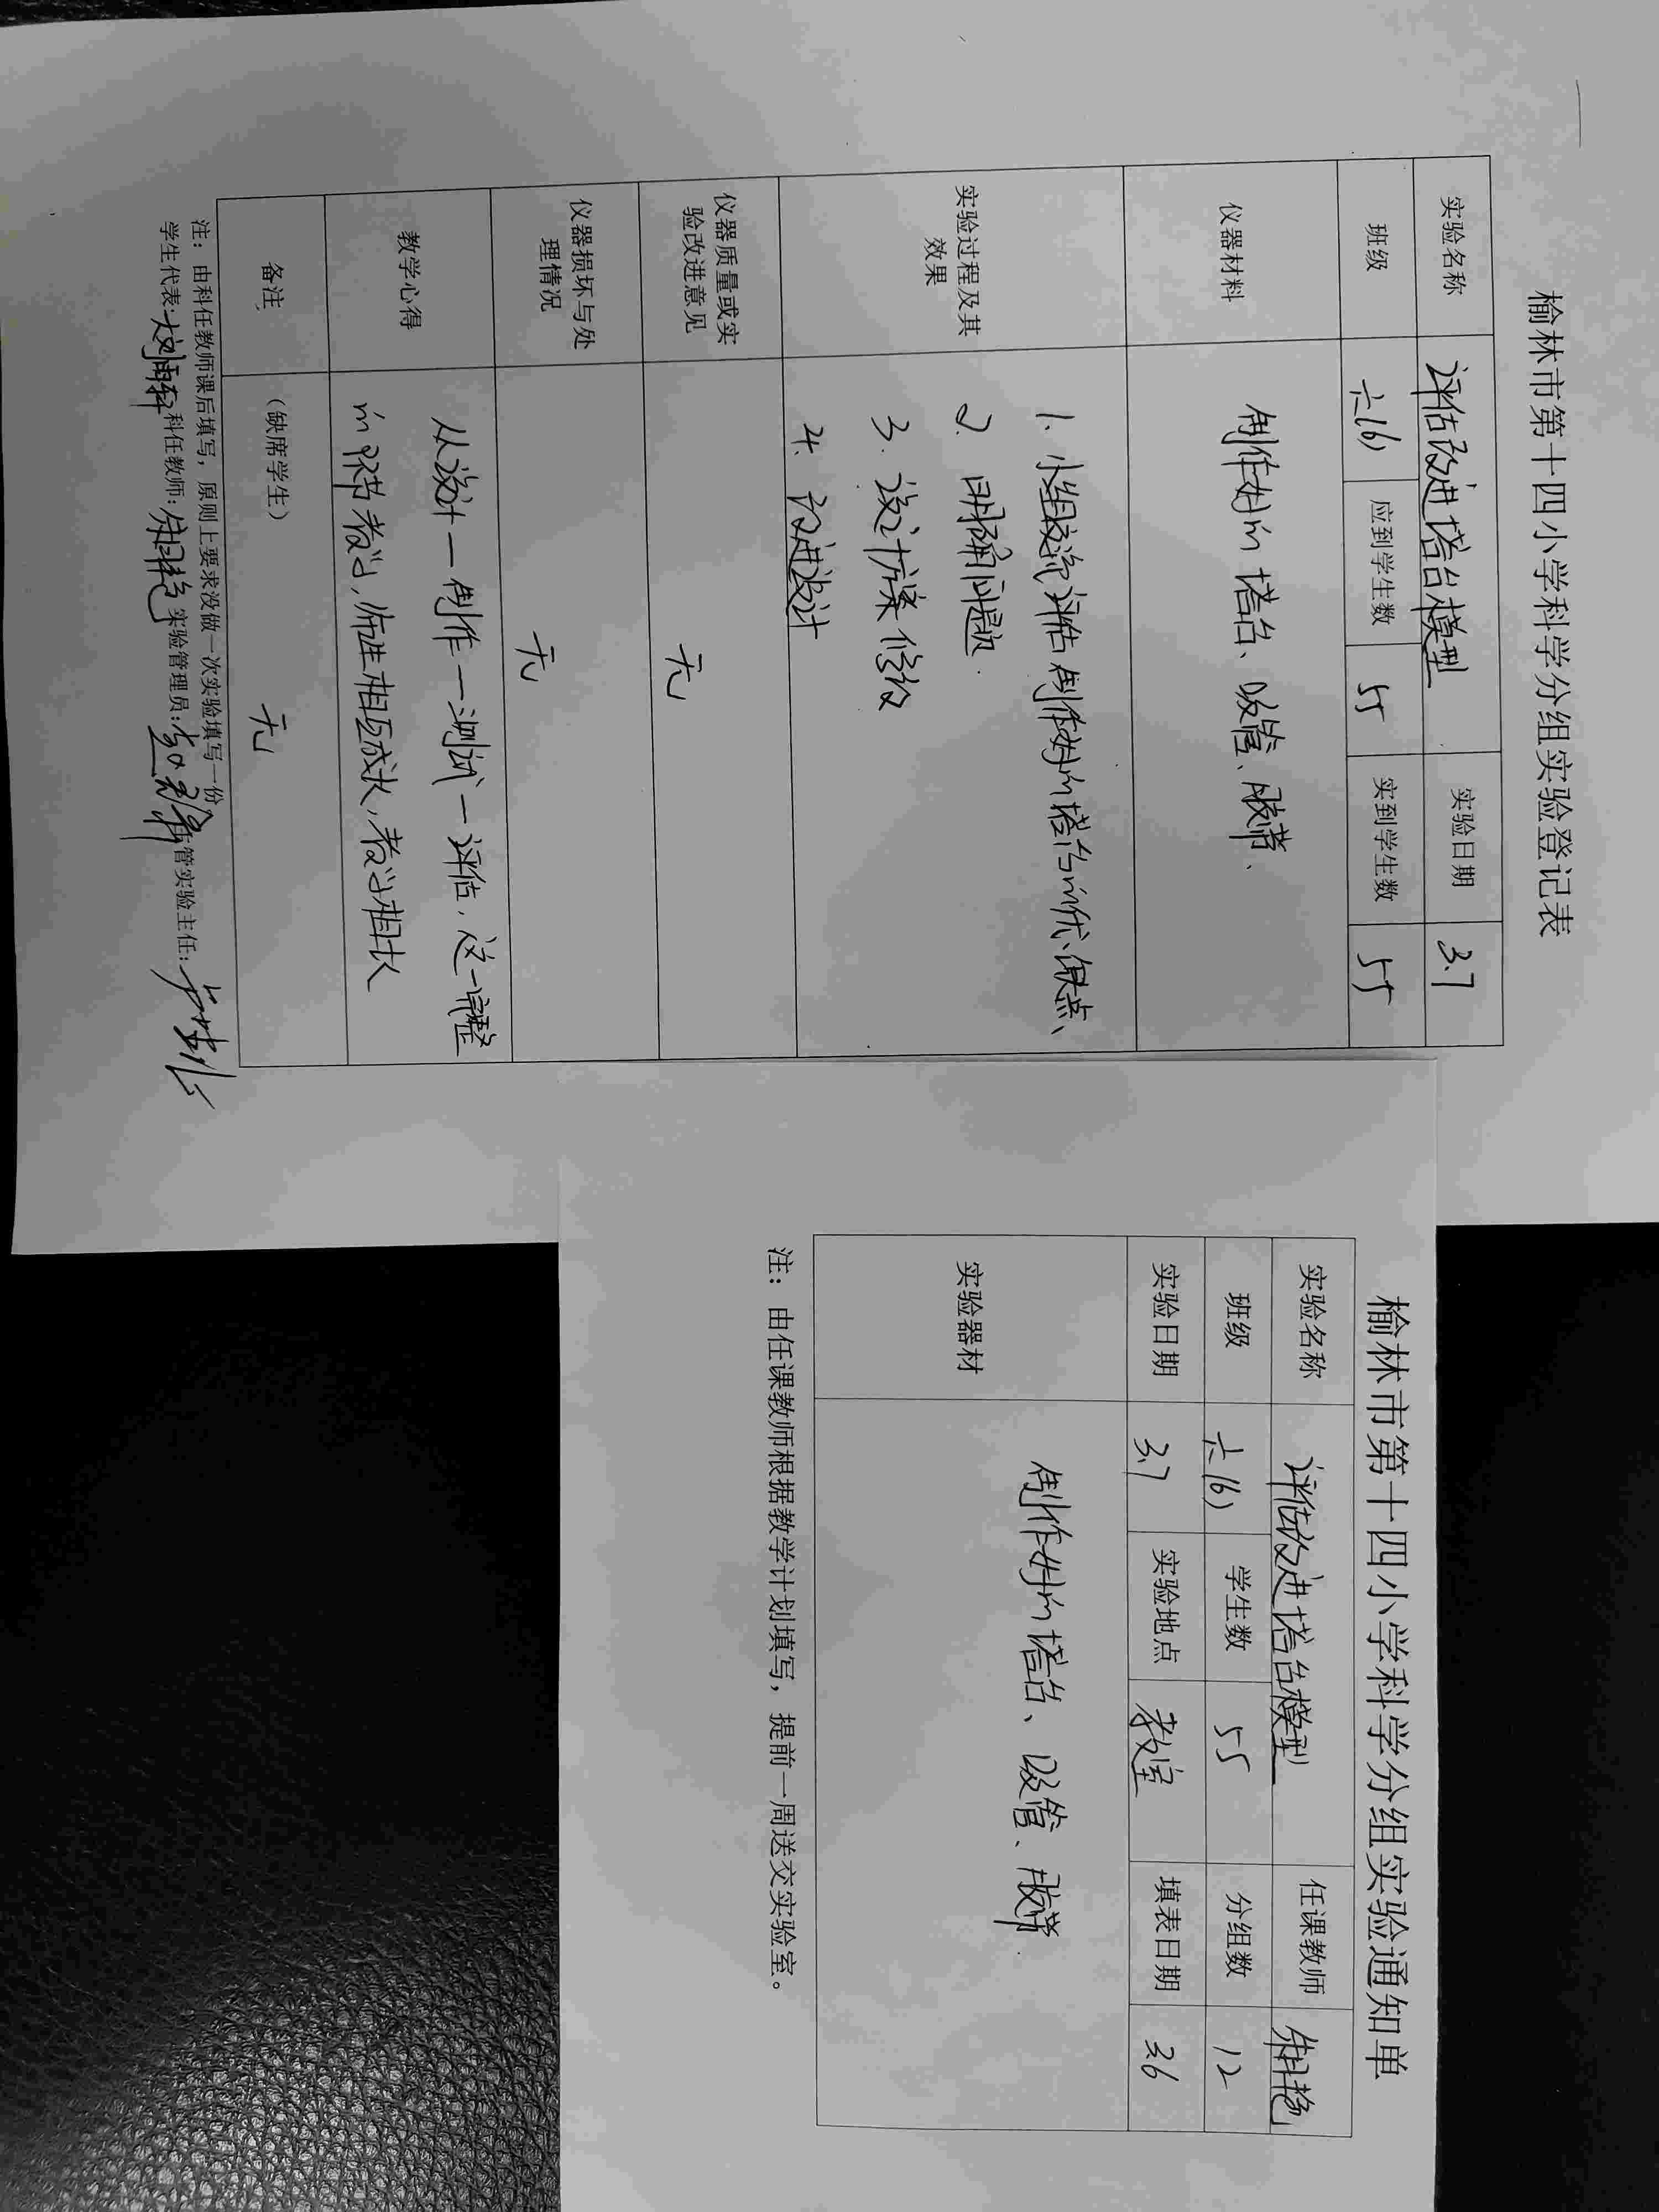 榆林市第十四小学科学分组实验登记表
实验名称 评估改进塔台模型 实验日期 3.7
班级 六(6) 应到学生数 55 实到学生数 55
仪器材料 制作好的塔台、吸管、胶带、
实验过程及其
效果
1. 小组交流评估制作好的塔台的优、缺点、
2. 明确问题.
3. 设计方案修改
4. 改进设计
仪器质量或实
验改进意见
无
仪器损坏与处
理情况
无
教学心得
从设计一制作一测试一评估,这一完整
的环节教学,师生相互成长,教学相长
备注 (缺席学生) 无
注:由科任教师课后填写,原则上要求没做一次实验填写一份
学生代表: 科任教师: 实验管理员: 管实验主任:
榆林市第十四小学科学分组实验通知单
实验名称 评估改进塔台模型 任课教师
班级 六(6) 学生数 55 分组数 12
实验日期 3.7 实验地点 教室 填表日期 3.6
实验器材 制作好的塔台、吸管、胶带.
注:由任课教师根据教学计划填写,提前一周送交实验室。